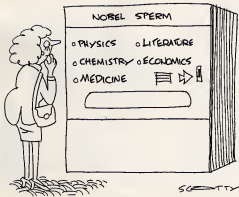 NOBEL SPERM
• PHYSICS • LITERATURE
• CHEMISTRY • ECONOMICS
• MEDICINE